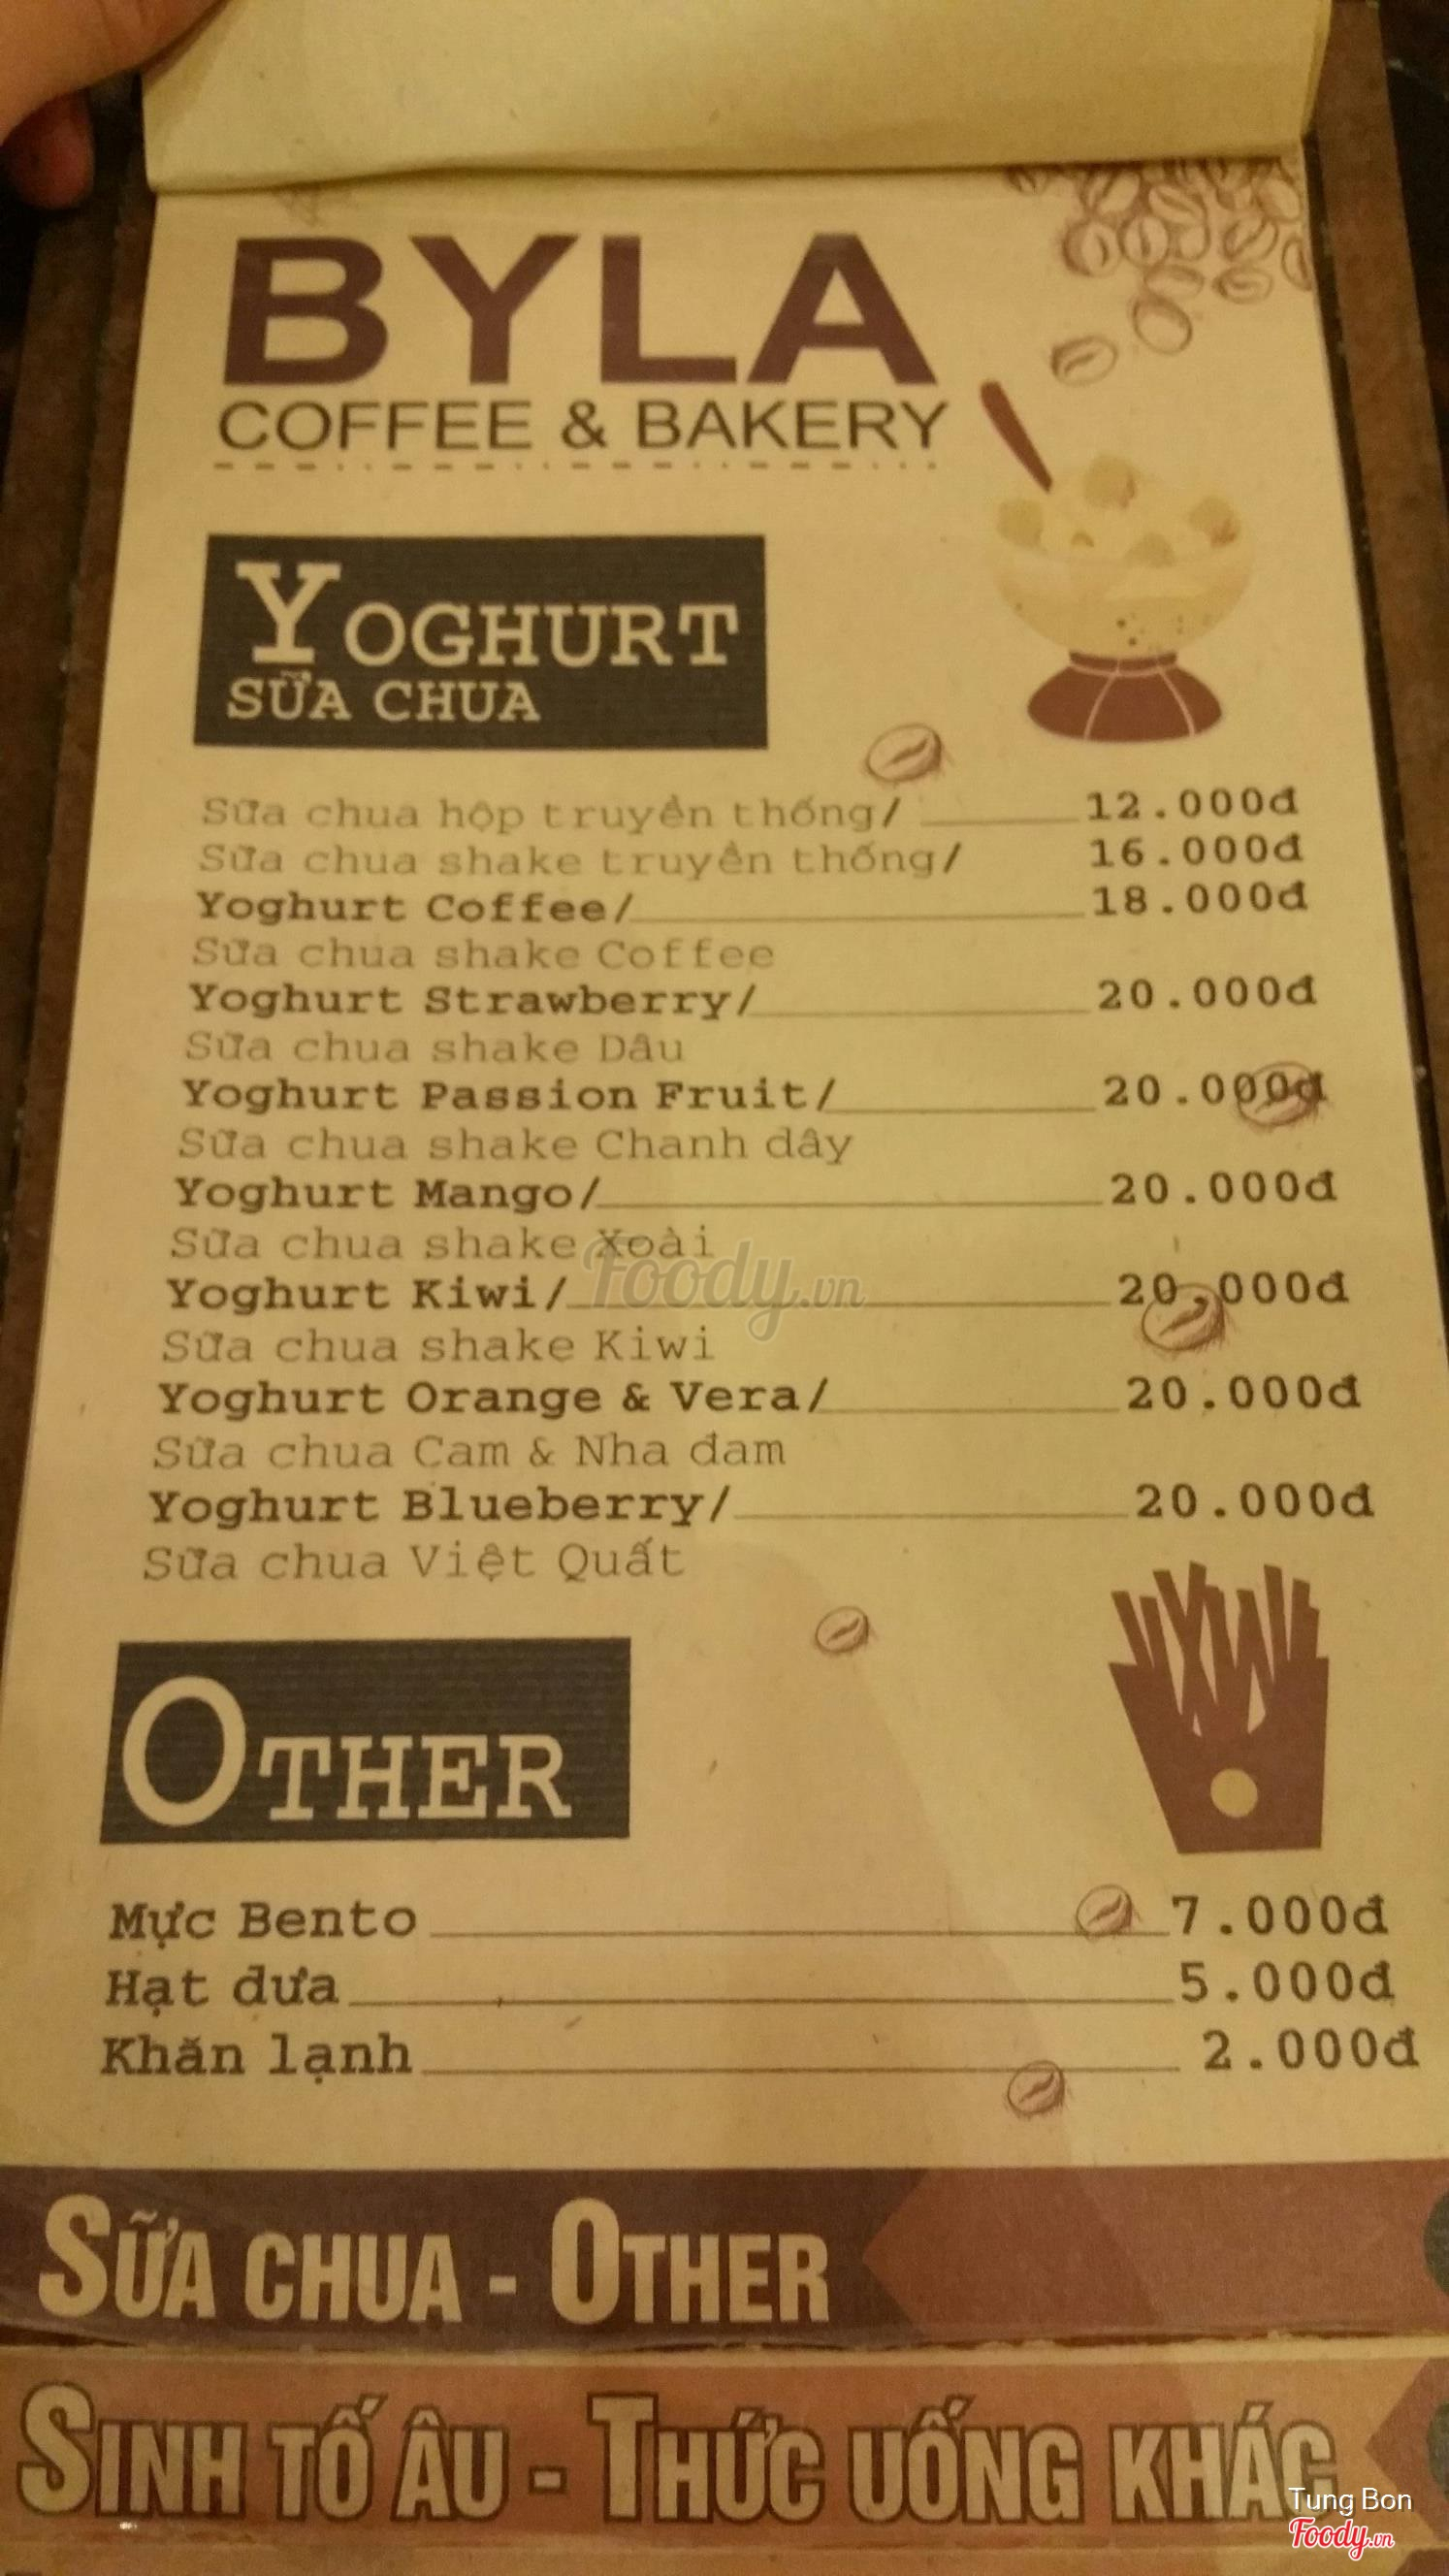 BYLA
COFFEE & BAKERY
YOGHURT
SỮA CHUA
Sữa chua hộp truyền thống/ 12.000đ
Sữa chua shake truyền thống/ 16.000đ
Yoghurt Coffee/ 18.000đ
Sữa chua shake Coffee
Yoghurt Strawberry/ 20.000đ
Sữa chua shake Dâu
Yoghurt Passion Fruit/ 20.000đ
Sữa chua shake Chanh dây
Yoghurt Mango/ 20.000đ
Sữa chua shake Xoài
Yoghurt Kiwi/ 20.000đ
Sữa chua shake Kiwi
Yoghurt Orange & Vera/ 20.000đ
Sữa chua Cam & Nha đam
Yoghurt Blueberry/ 20.000đ
Sữa chua Việt Quất
OTHER
Mực Bento 7.000đ
Hạt dưa 5.000đ
Khăn lạnh 2.000đ
SỮA CHUA - OTHER
SINH TỐ ÂU - THỨC UỐNG KHÁC
Foody.vn
Tung Bon
Foody.vn